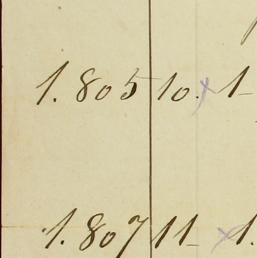 1.805 10. x 1-
1.807 11- x 1.